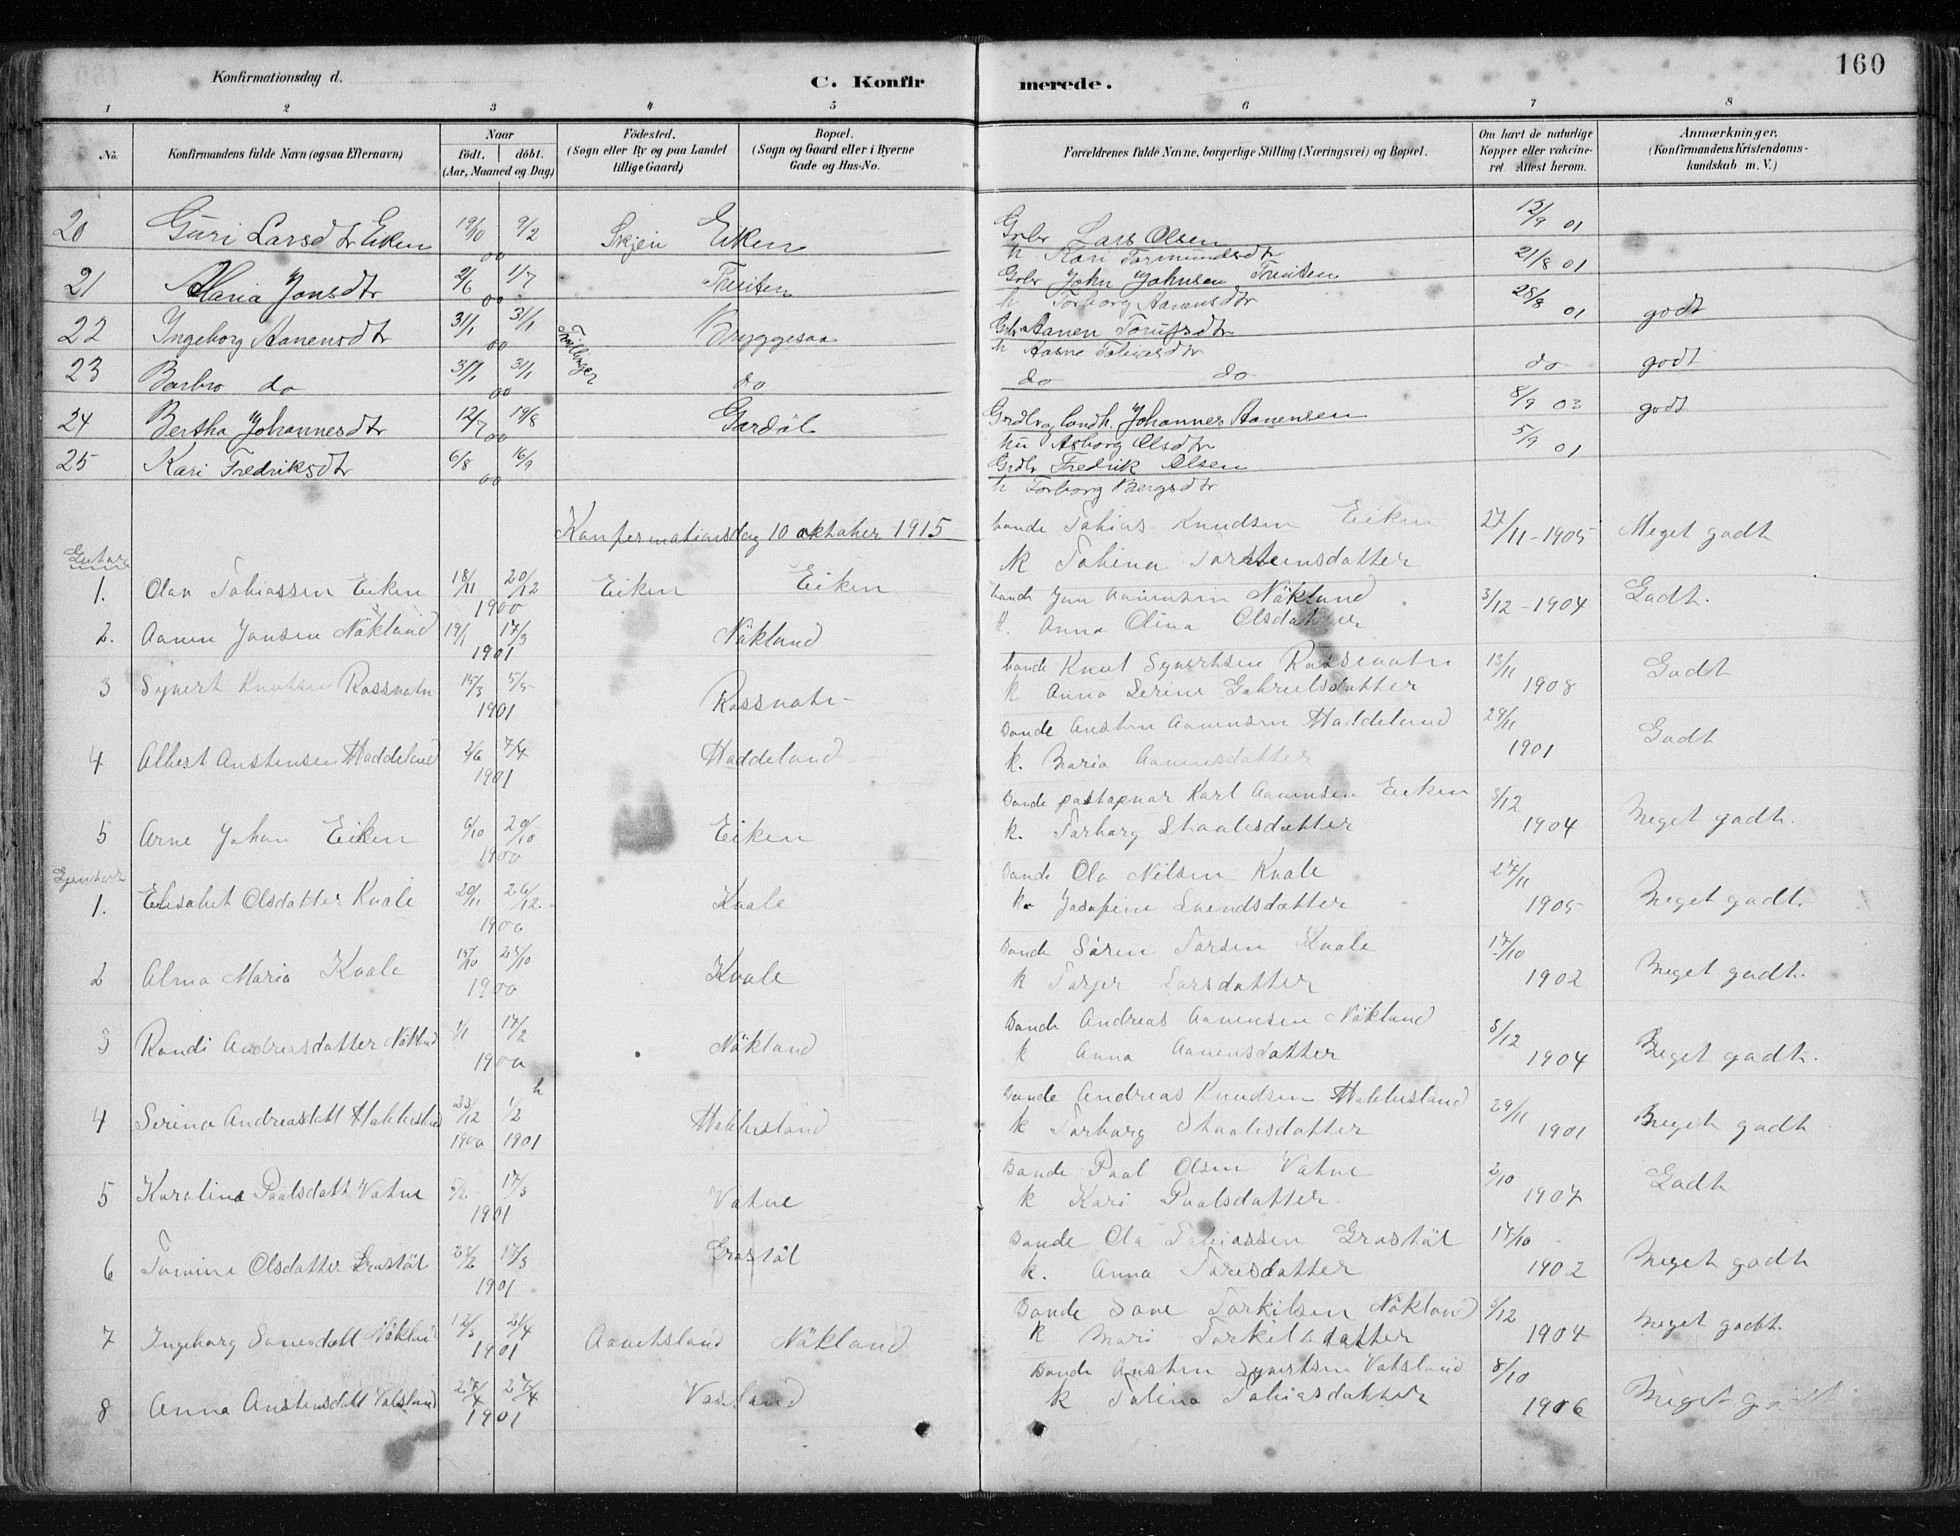 160
Konfirmationsdag d.
C. Konfirmerede.
1 2 3 4 5 6 7 8
No.
Konfirmandens fulde Navn (ogsaa Efternavn)
Naar
födt. döbt.
(Aar, Maaned og Dag)
Födested.
(Sogn eller By og paa Landet
tillige Gaard)
Bopæl.
(Sogn og Gaard eller i Byerne
Gade og Hus-No.
Forældrenes fulde Navne, borgerlige Stilling (Næringsvei) og Bopæl.
Om havt de naturlige
Kopper eller vakcineret. Attest herom.
Anmærkninger.
(Konfirmandens Kristendomskundskab m. V.)
20 Guri Larsdtr Eiken 19/10 9/2 00 Skjein Eiken Grbr Lars Olsen 12/9 01
h Kari Tormundsdtr
21 Maria Jonsdtr 2/6 1/7 00 Grbr John Johnsen 21/8 01
h Torborg Aanensdtr
22 Ingeborg Aanensdtr 31/1 31/1 00 Tvillinger Bryggesaa Grbr Aanen 28/8 01 godt
h Aasne Tobiasdtr
23 Barbro do 31/1 31/1 00 do do do do godt
24 Bertha Johannesdtr 12/7 19/8 00 Gardöl Grdbr og landh. Johannes Aanensen 8/9 03 godt
hu Asborg Olsdtr
25 Kari Fredriksdtr 6/8 16/9 00 Grdbr Fredrik Olsen 5/9 01
h Torborg Bergsdtr
Konfermationsdag 10 oktober 1915
Gutar
1. Olav Tobiassen Eiken 18/11 20/12 1900 Eiken Eiken bonde Tobias Knudsen Eiken 27/11-1905 Meget godt
k Tobina Torsteinsdatter
2. Aanen Jonsen Nökland 19/1 17/3 1901 Nökland bonde Jon Aanensen Nökland 3/12-1904 Godt.
k. Anna Olina Olsdatter
3 Syvert Knutsen Rossvatn 15/3 5/5 1901 Rossvatn bonde Knut Syvertsen Rossvatn 13/11 1908 Godt
k Anna Serine Gabrielsdatter
4 Albert Austensen Haddeland 1901 Haddeland Bonde Austen Aanensen Haddeland 29/11 1901 Godt
k. Maria Aanensdatter
5 Arne Johan Eiken 6/10 20/10 1900 Eiken Bonde postopnar Karl Aanensen Eiken 3/12 1904 Meget godt.
k. Torborg Staalesdatter
Gjentor
1. Elisabet Olsdatter Kvale 20/11 26/12 1900 Kvale Bonde Ola Nilsen Kvale 27/11 1905 Meget godt.
k. Josefine Svendsdatter
2 Alma Maria Kvale 15/10 25/10 1900 Kvale Bonde Sören Torsen Kvale 17/10 1902 Meget godt.
k Tarjer Larsdatter
3 Randi Andreasdatter Nökland 1/1 17/2 1900 Nökland Bonde Andreas Aanensen Nökland 3/12 1904 Meget godt.
k Anna Aanensdatter
4 Serina Andreasdatt 23/12 1900 h 1/2 1901 Bonde Andreas Knudsen 29/11 1901 Meget godt
k Torborg Staalesdatter
5 Karolina Paalsdatt Vatne 5/2 17/3 1901 Vatne Bonde Paal Olsen Vatne 2/10 1907 Godt
k Kari Paalsdatter
6 Tomine Olsdatter Grostöl 17/3 1901 Grostöl Bonde Ola Tobiassen Grostöl 17/10 1902 Meget godt
k. Anna Toresdatter
7 Ingeborg Sonesdatt Nökland 12/3 21/4 1901 Nökland Bonde Sone Torkilsen Nökland 3/12 1904 Meget godt.
k Mari Torkilsdatter
8 Anna Austensdatt Vatsland 27/4 1901 Bonde Austen Syvertsen Vatsland 8/10 1906 Meget godt
k Talina Tobiasdatter